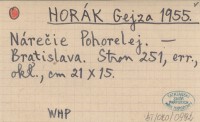 HORÁK Gejza 1955.
Nárečie Pohorelej. —
Bratislava. Stran 251, err.,
okl., cm 21 X 15.
WHP